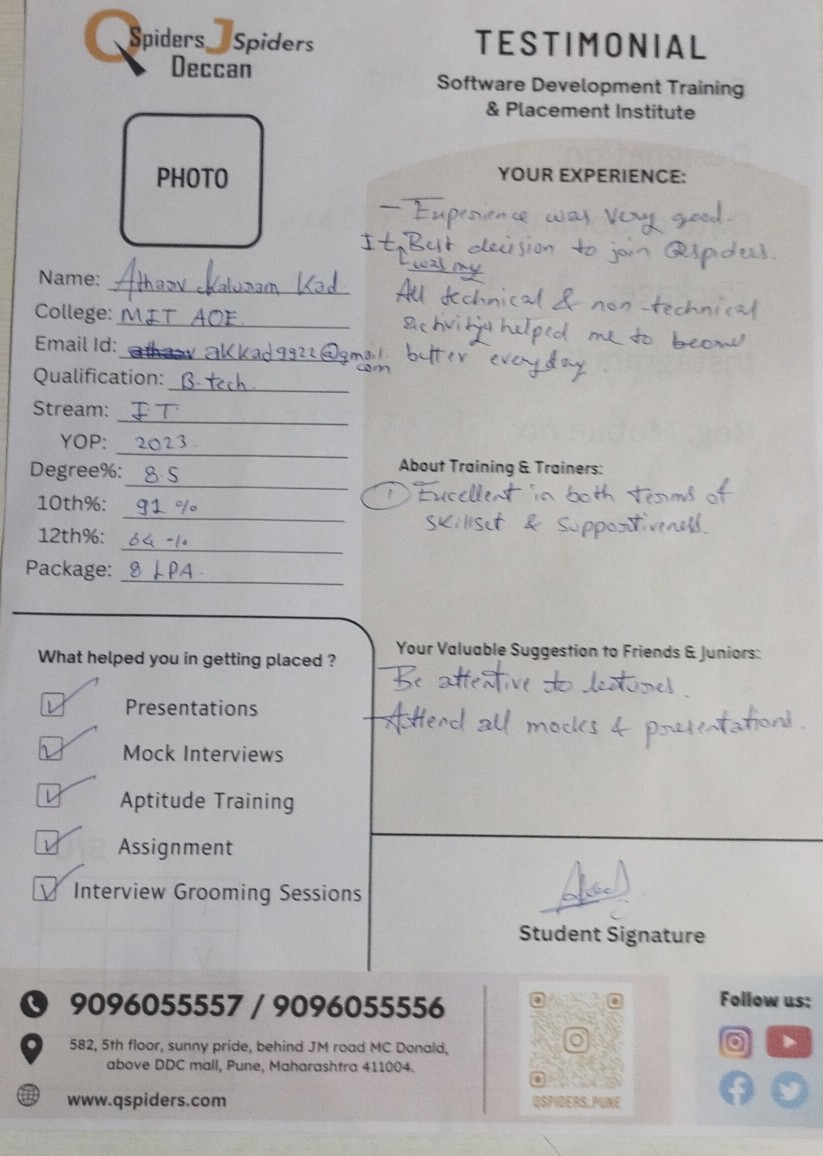 QSpiders JSpiders
Deccan
TESTIMONIAL
Software Development Training
& Placement Institute
PHOTO
Name: Atharv Kalunam Kad
College: MIT AOE
Email Id: atharv akkad9922@gmail.
com
Qualification: B.tech
Stream: IT
YOP: 2023.
Degree%: 8.5
10th%: 91 %
12th%: 64 %
Package: 8 LPA.
YOUR EXPERIENCE:
- Experience was very good.
It was my Best decision to join Qspiders.
All technical & non-technical
activities helped me to become
better everyday
About Training & Trainers:
① Excellent in both terms of
skillset & supportiveness.
Your Valuable Suggestion to Friends & Juniors:
Be attentive to lectures.
Attend all mocks & presentations.
What helped you in getting placed ?
Presentations
Mock Interviews
Aptitude Training
Assignment
Interview Grooming Sessions
Student Signature
9096055557 / 9096055556
582, 5th floor, sunny pride, behind JM road MC Donald,
above DDC mall, Pune, Maharashtra 411004.
www.qspiders.com
QSPIDERS_PUNE
Follow us: